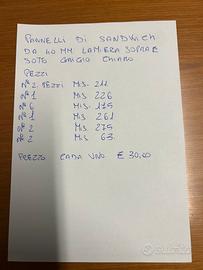 PANNELLI DI SANDWICH
DA 40 MM. LAMIERA SOPRA E
SOTO GRIGIO CHIARO
PEZZI
N° 2. PEZZI MIS. 211
N° 1 MIS 226
N° 6 MIS. 175
N° 1 MIS. 261
N° 2 MIS. 275
N° 2 MIS. 63.
PREZZO CADA UNO € 30,00
subito